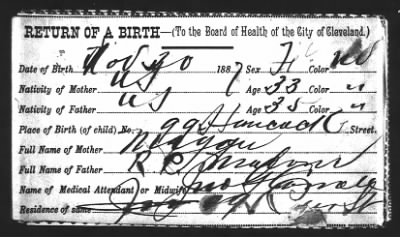 RETURN OF A BIRTH—(To the Board of Health of the City of Cleveland.)
Date of Birth Nov 30 1887 Sex F Color
Nativity of Mother US Age 33 Color "
Nativity of Father US Age 35 Color "
Place of Birth (of child) No. 99 Hancock Street.
Full Name of Mother Maggie
Full Name of Father R
Name of Medical Attendant or Midwife
Residence of same